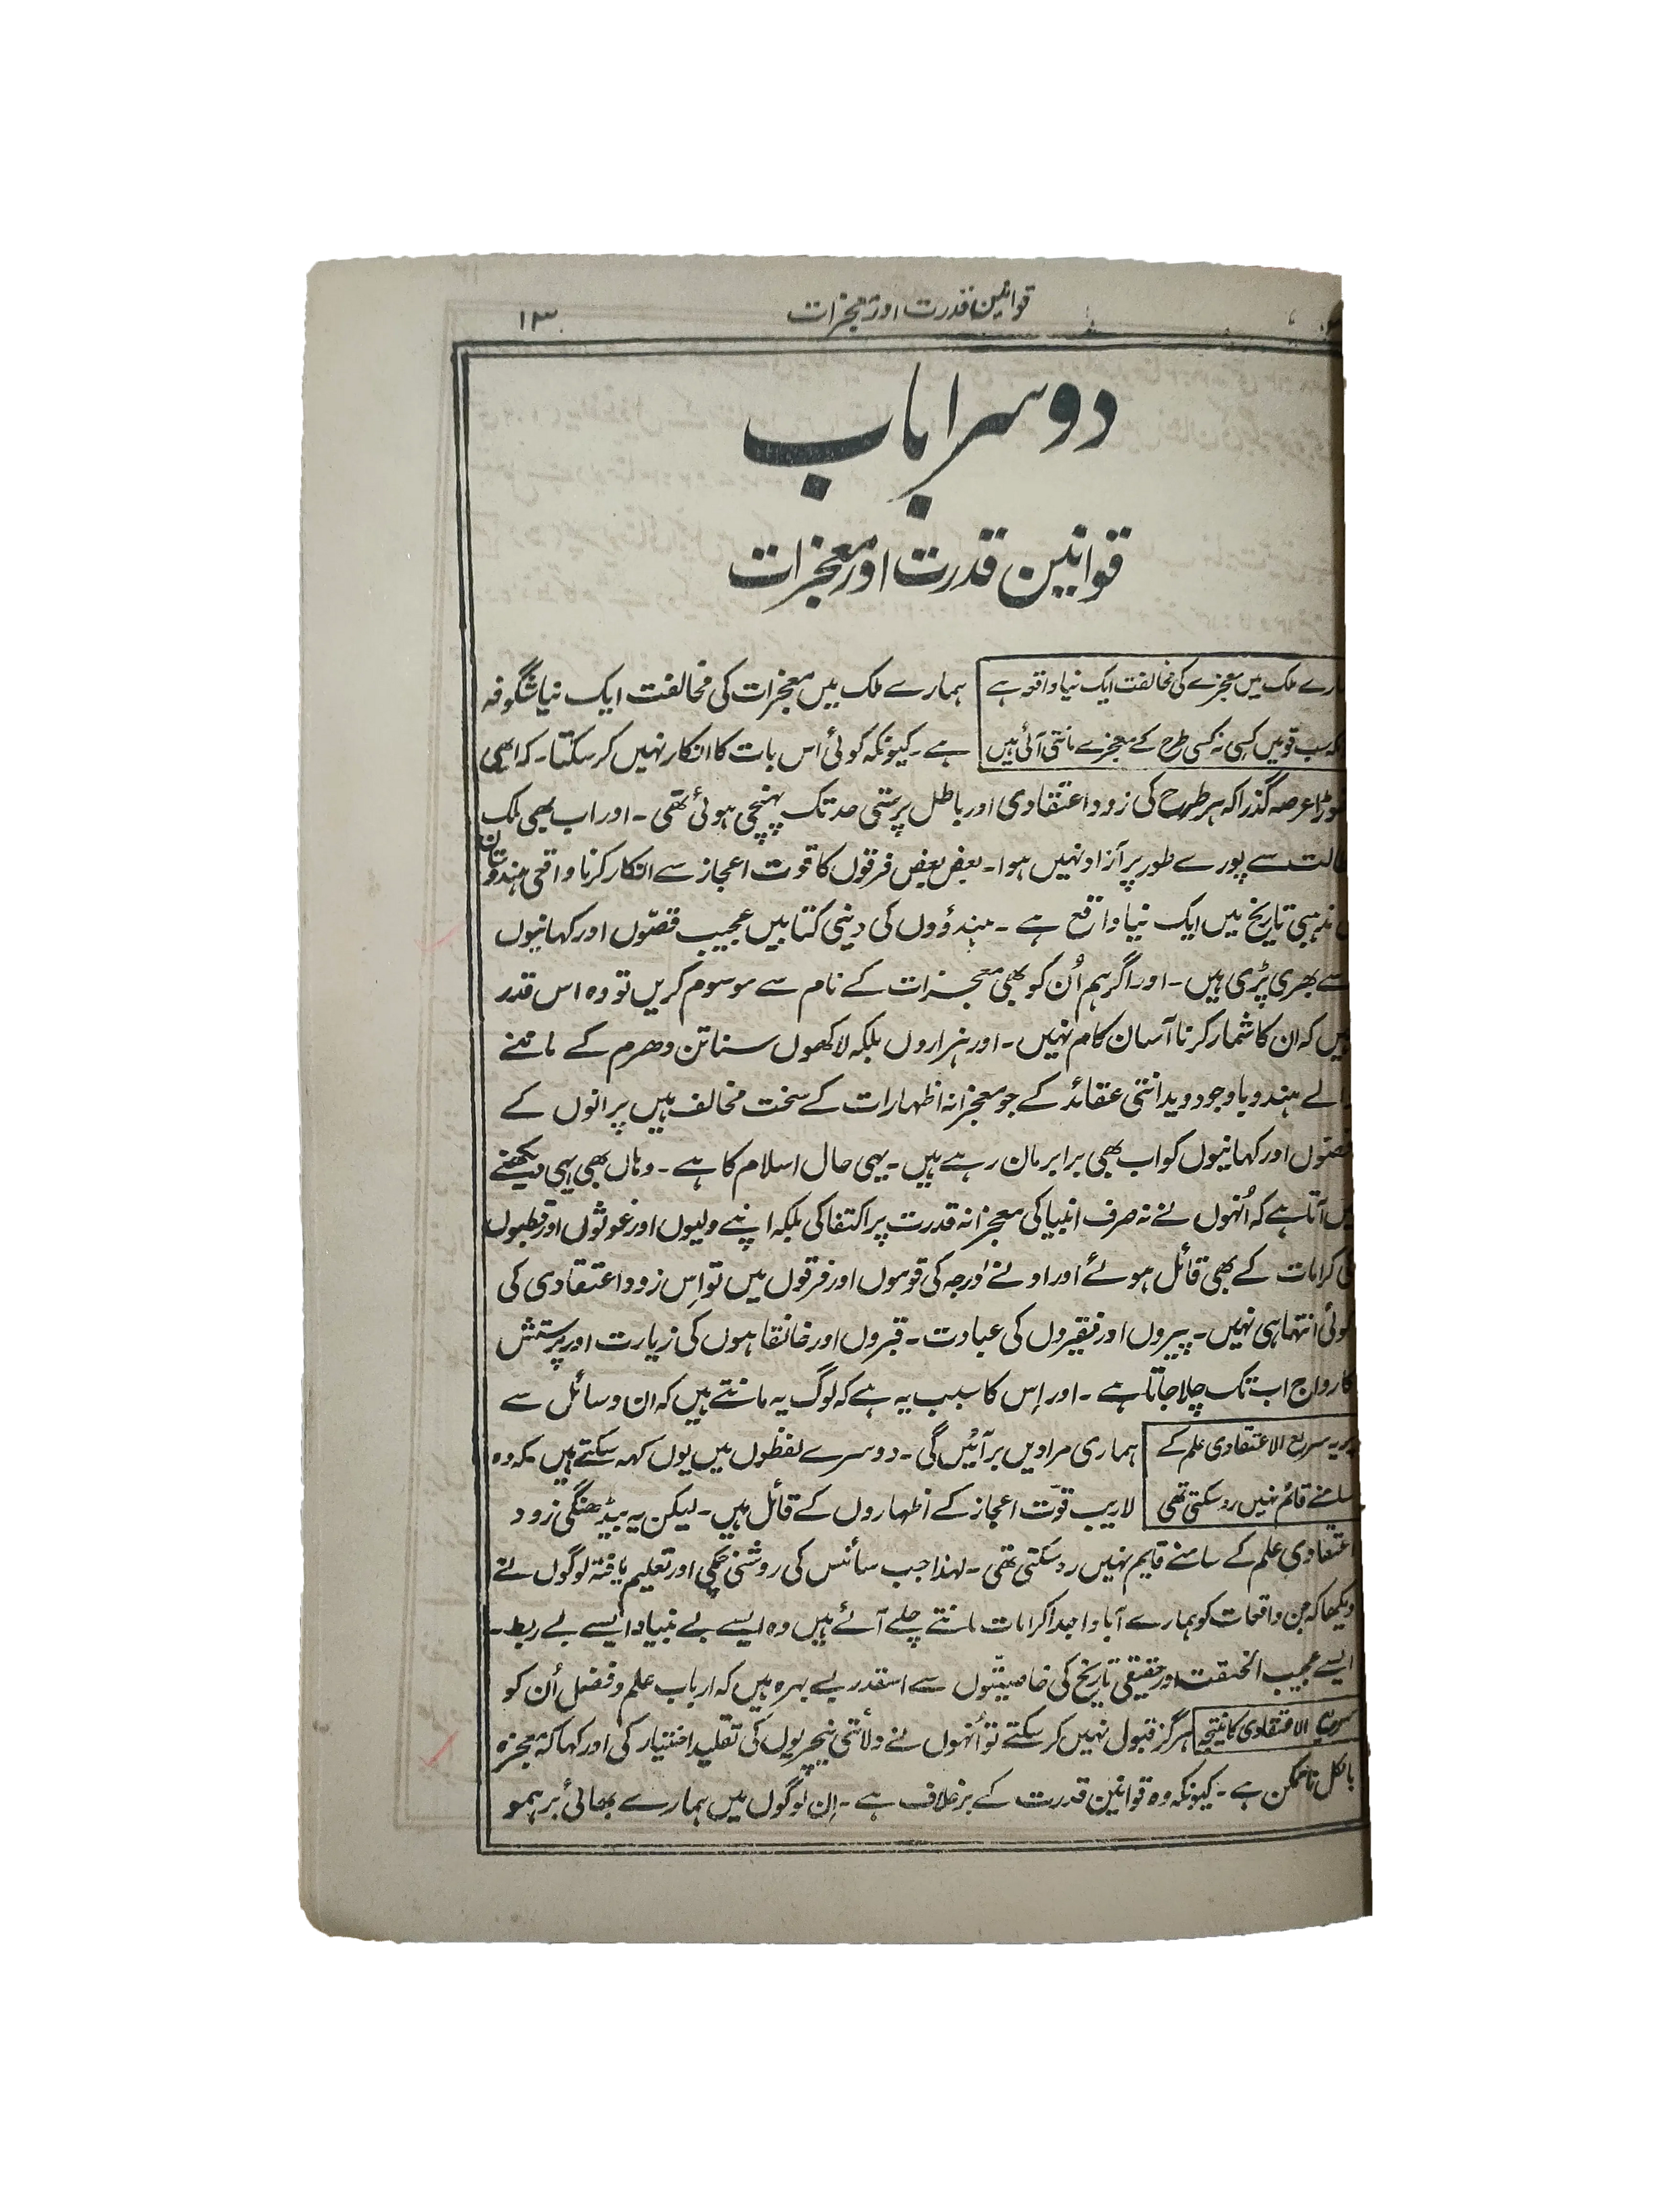 قوانین قدرت اور معجزات
۱۳
دوسرا باب
قوانین قدرت اور معجزات
ہمارے ملک میں معجزے کی مخالفت ایک نیا واقعہ ہے
سب قومیں کسی نہ کسی طرح کے معجزے مانتی آئی ہیں
ہمارے ملک میں معجزات کی مخالفت ایک نیا شگوفہ
ہے۔ کیونکہ کوئی اس بات کا انکار نہیں کرسکتا۔ کہ ابھی
تھوڑا عرصہ گذرا کہ ہر طرح کی زود اعتقادی اور باطل پرستی حد تک پہنچی ہوئی تھی۔ اور اب بھی ملک
سے پورے طور پر آزاد نہیں ہوا۔ بعض بعض فرقوں کا قوت اعجاز سے انکار کرنا واقعی ہندوستان
مذہبی تاریخ میں ایک نیا واقع ہے۔ ہندؤوں کی دینی کتابیں عجیب قصّوں اور کہانیوں
سے بھری پڑی ہیں۔ اور اگر ہم اُن کو بھی معجزات کے نام سے موسوم کریں تو وہ اس قدر
ہیں کہ ان کا شمار کرنا آسان کام نہیں۔ اور ہزاروں بلکہ لاکھوں سناتن دھرم کے ماننے
والے ہندو باوجود ویدانتی عقائد کے جو معجزانہ اظہارات کے سخت مخالف ہیں پرانوں کے
قصّوں اور کہانیوں کو اب بھی برابر مان رہے ہیں۔ یہی حال اسلام کا ہے۔ وہاں بھی یہی دیکھنے
میں آتا ہے کہ اُنہوں نے نہ صرف انبیا کی معجزانہ قدرت پر اکتفا کی بلکہ اپنے ولیوں اور غوثوں اور قطبوں
کی کرامات کے بھی قائل ہوئے اور ادنےٰ درجہ کی قوموں اور فرقوں میں تو اِس زود اعتقادی کی
کوئی انتہا ہی نہیں۔ پیروں اور فقیروں کی عبادت۔ قبروں اور خانقاہوں کی زیارت اور پرستش
کا رواج اب تک چلا جاتا ہے۔ اور اِس کا سبب یہ ہے کہ لوگ یہ مانتے ہیں کہ ان وسائل سے
یہ سریع الاعتقادی علم کے
سامنے قائم نہیں رہ سکتی تھی
ہماری مرادیں بر آئیں گی۔ دوسرے لفظوں میں یوں کہہ سکتے ہیں کہ وہ
لاریب قوّت اعجاز کے اظہاروں کے قائل ہیں۔ لیکن یہ بیڈھنگی زود
اعتقادی علم کے سامنے قایم نہیں رہ سکتی تھی۔ لہذا جب سائنس کی روشنی چمکی اور تعلیم یافتہ لوگوں نے
دیکھا کہ جن واقعات کو ہمارے آبا و اجداد کرامات مانتے چلے آئے ہیں وہ ایسے بے بنیاد ایسے بے ربط۔
ایسے عجیب الخلقت اور حقیقی تاریخ کی خاصیتّوں سے اسقدر بے بہرہ ہیں کہ ارباب علم و فضل اُن کو
سریع الاعتقادی کا نتیجہ
ہرگز قبول نہیں کرسکتے تو اُنہوں نے ولائتی نیچریوں کی تقلید اختیار کی اور کہا کہ معجزہ
بالکل ناممکن ہے۔ کیونکہ وہ قوانین قدرت کے برخلاف ہے۔ اِن لوگوں میں ہمارے بھائی برہمو